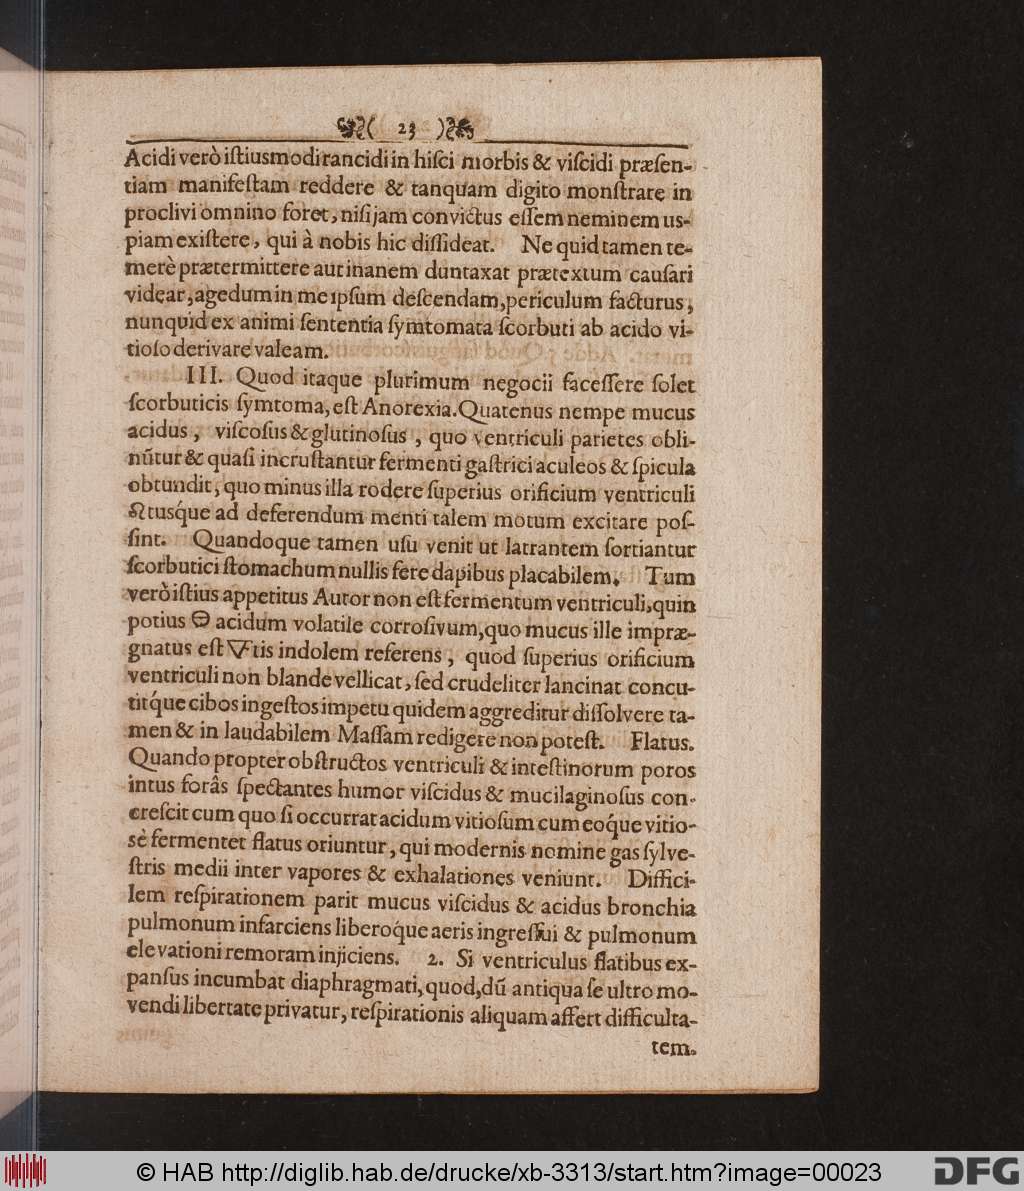 ( 23 )
Acidi verò iſtiusmodi rancidi in hiſci morbis & viſcidi præſen-
tiam manifeſtam reddere & tanquam digito monſtrare in
proclivi omnino foret, niſi jam convictus eſſem neminem us-
piam exiſtere, qui à nobis hic diſſideat. Ne quid tamen te-
merè prætermittere aut inanem duntaxat prætextum cauſari
videar, agedum in me ipſum deſcendam, periculum facturus,
nunquid ex animi ſententia ſymtomata ſcorbuti ab acido vi-
tioſo derivare valeam.
III. Quod itaque plurimum negocii faceſſere ſolet
ſcorbuticis ſymtoma, eſt Anorexia. Quatenus nempe mucus
acidus, viſcoſus & glutinoſus, quo ventriculi parietes obli-
nũtur & quaſi incruſtantur fermenti gaſtrici aculeos & ſpicula
obtundit, quo minus illa rodere ſuperius orificium ventriculi
tusq́ue ad deferendum menti talem motum excitare poſ-
ſint. Quandoque tamen uſu venit ut latrantem ſortiantur
ſcorbutici ſtomachum nullis fere dapibus placabilem. Tum
verò iſtius appetitus Autor non eſt fermentum ventriculi, quin
potius acidum volatile corroſivum, quo mucus ille impræ-
gnatus eſt tis indolem referens, quod ſuperius orificium
ventriculi non blande vellicat, ſed crudeliter lancinat concu-
titq́ue cibos ingeſtos impetu quidem aggreditur diſſolvere ta-
men & in laudabilem Maſſam redigere non poteſt. Flatus.
Quando propter obſtructos ventriculi & inteſtinorum poros
intus forâs ſpectantes humor viſcidus & mucilaginoſus con-
creſcit cum quo ſi occurrat acidum vitioſum cum eoq́ue vitio-
sè fermentet flatus oriuntur, qui modernis nomine gas ſylve-
ſtris medii inter vapores & exhalationes veniunt. Diffici-
lem reſpirationem parit mucus viſcidus & acidus bronchia
pulmonum infarciens liberoq́ue aeris ingreſſui & pulmonum
elevationi remoram injiciens. 2. Si ventriculus flatibus ex-
panſus incumbat diaphragmati, quod, dũ antiqua ſe ultro mo-
vendi libertate privatur, reſpirationis aliquam affert difficulta-
tem.
© HAB http://diglib.hab.de/drucke/xb-3313/start.htm?image=00023
DFG